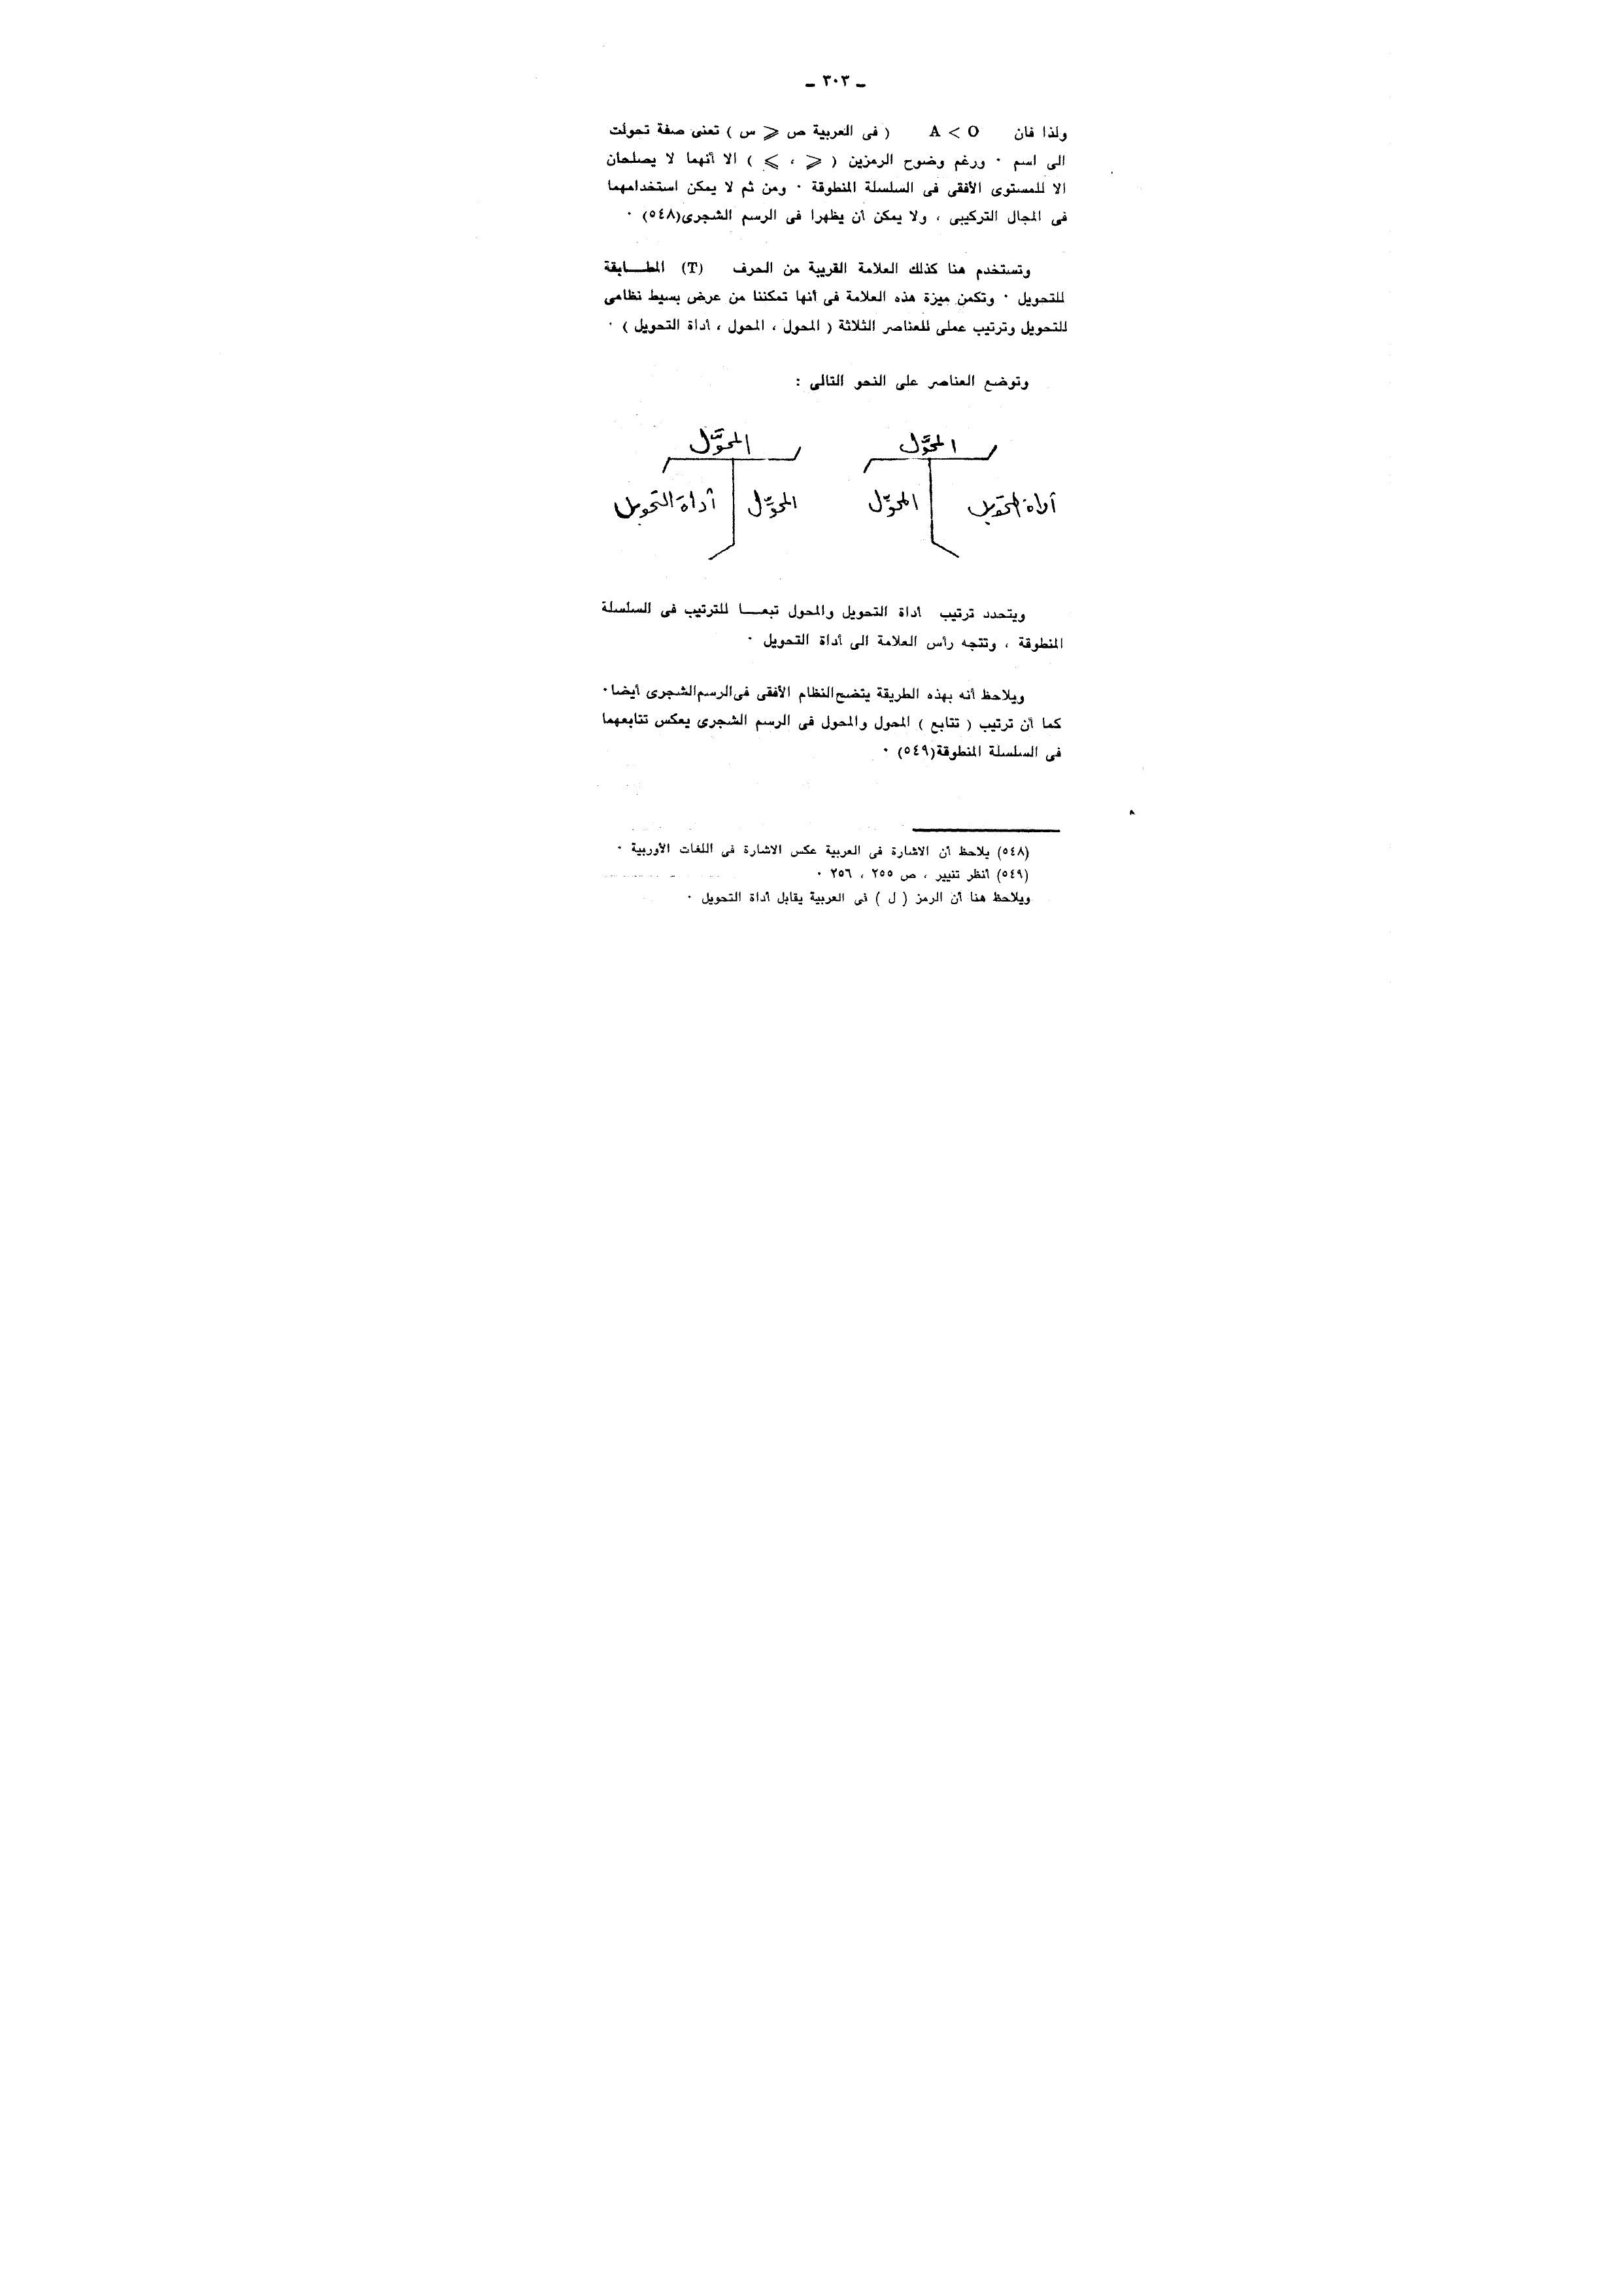 ـ ٣٠٣ ـ
ولذا فان A < O ( فى العربية ص ⩾ س ) تعنى صفة تحولت
الى اسم ٠ ورغم وضوح الرمزين ( ⩾ ، ⩽ ) الا أنهما لا يصلحان
الا للمستوى الأفقى فى السلسلة المنطوقة ٠ ومن ثم لا يمكن استخدامهما
فى المجال التركيبى ، ولا يمكن أن يظهرا فى الرسم الشجرى(٥٤٨) ٠
وتستخدم هنا كذلك العلامة القريبة من الحرف (T) المطـــابقة
للتحويل ٠ وتكمن ميزة هذه العلامة فى أنها تمكننا من عرض بسيط نظامى
للتحويل وترتيب عملى للعناصر الثلاثة ( المحول ، المحول ، أداة التحويل ) ٠
وتوضع العناصر على النحو التالى :
المحوَّل المحوَّل
أداة التحويل المحوِّل المحوِّل أداة التحويل
ويتحدد ترتيب أداة التحويل والمحول تبعـــا للترتيب فى السلسلة
المنطوقة ، وتتجه رأس العلامة الى أداة التحويل ٠
ويلاحظ أنه بهذه الطريقة يتضح النظام الأفقى فى الرسم الشجرى أيضا٠
كما أن ترتيب ( تتابع ) المحول والمحول فى الرسم الشجرى يعكس تتابعهما
فى السلسلة المنطوقة(٥٤٩) ٠
(٥٤٨) يلاحظ أن الاشارة فى العربية عكس الاشارة فى اللغات الأوربية ٠
(٥٤٩) أنظر تنيير ، ص ٢٥٥ ، ٢٥٦ ٠
ويلاحظ هنا أن الرمز ( ل ) فى العربية يقابل أداة التحويل ٠